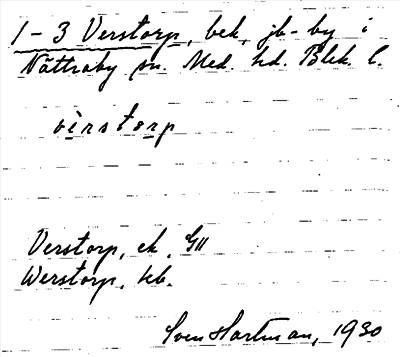 1-3 Verstorp, bek. jb-by i
Nättraby sn. Med. hd. Blek. l.
værstorp
Verstorp, ek. GII
Werstorp, kb.
Sven Hartman, 1930